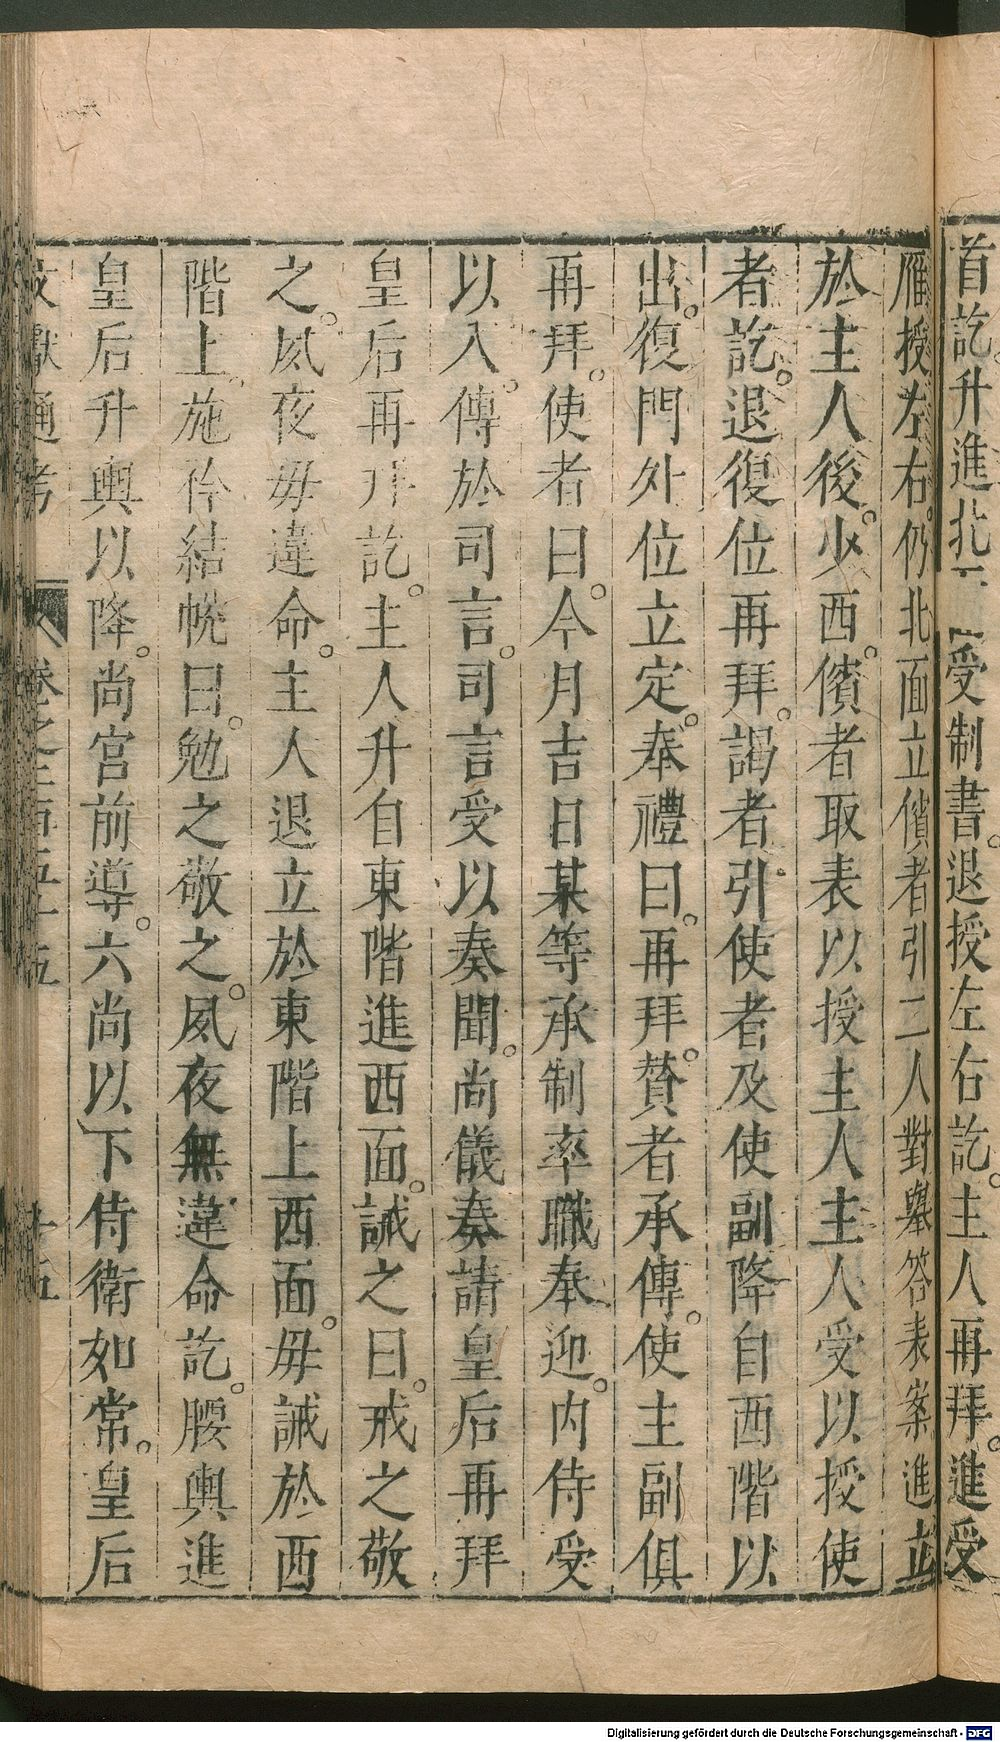 首訖。升進北
受制書。退授左右訖。主人再拜。進受
雁授左右。仍北面立儐者引二人對舉答表案進立
於主人後。少西。儐者取表以授主人主人受以授使
者訖。退復位再拜。謁者引使者及使副降自西階以
出。復門外位立定。奉禮曰。再拜。贊者承傳。使主副俱
再拜。使者曰。今月吉日某等承制率職奉迎。內侍受
以入。傳於司言。司言受以奏聞。尚儀奏請皇后再拜
皇后再拜訖。主人升自東階進西面。誡之曰。戒之敬
之。夙夜毋違命。主人退立於東階上西面。毋誡於西
階上。施衿結帨曰。勉之敬之。夙夜無違命訖。腰輿進
皇后升輿以降。尚宮前導。六尚以下侍衛如常。皇后
文獻通考 卷之二百五十五 十五
Digitalisierung gefördert durch die Deutsche Forschungsgemeinschaft - DFG